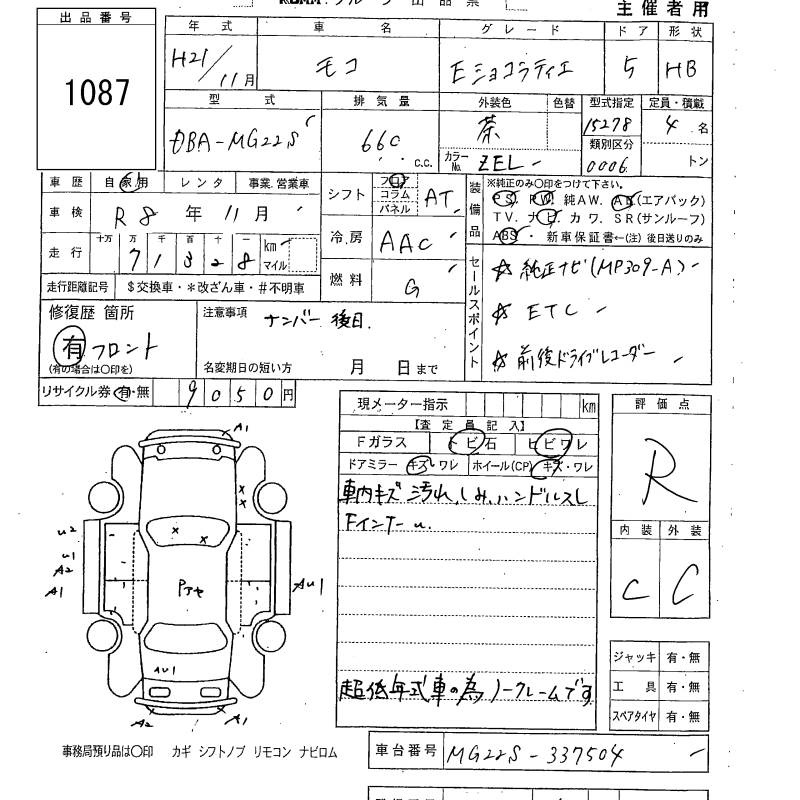 主催者用
出品番号
1087
年式 車名 グレード ドア 形状
H21/11月 モコ Eショコラティエ 5 HB
型式 排気量 外装色 色替 型式指定 定員・積載
DBA-MG22S 660 c.c. 茶 15278 4名
カラーNo. ZEL 類別区分 0006 トン
車歴 自家用 レンタ 事業.営業車
車検 R8年11月
走行 十万 万 千 百 十 一 km マイル
71328
走行距離記号 $交換車・*改ざん車・#不明車
シフト フロア コラム パネル AT
冷房 AAC
燃料 G
装備品 ※純正のみ○印をつけて下さい。
PS. PW. 純AW. AB(エアバック)
TV. ナビ カワ. SR(サンルーフ)
ABS・新車保証書←(注)後日送りのみ
セールスポイント
☆ 純正ナビ(MP309-A)
☆ ETC
☆ 前後ドライブレコーダー
修復歴 箇所
有 フロント
(有の場合は○印を)
注意事項 ナンバー後日.
名変期日の短い方 月 日まで
リサイクル券 有・無 9050円
現メーター指示 km
【査定員記入】
Fガラス トビ石 ヒビワレ
ドアミラー キズ・ワレ ホイール(CP) キズ・ワレ
車内キズ 汚れ.しみ.ハンドルスレ
FインナーU.
超低年式車の為ノークレームです
評価点
R
内装 外装
C C
A1
X
X
X X
U2
U1
A2
A1
Pアセ
AU1
AU1
A2 A1
ジャッキ 有・無
工具 有・無
スペアタイヤ 有・無
事務局預り品は○印 カギ シフトノブ リモコン ナビロム
車台番号 MG22S-337504